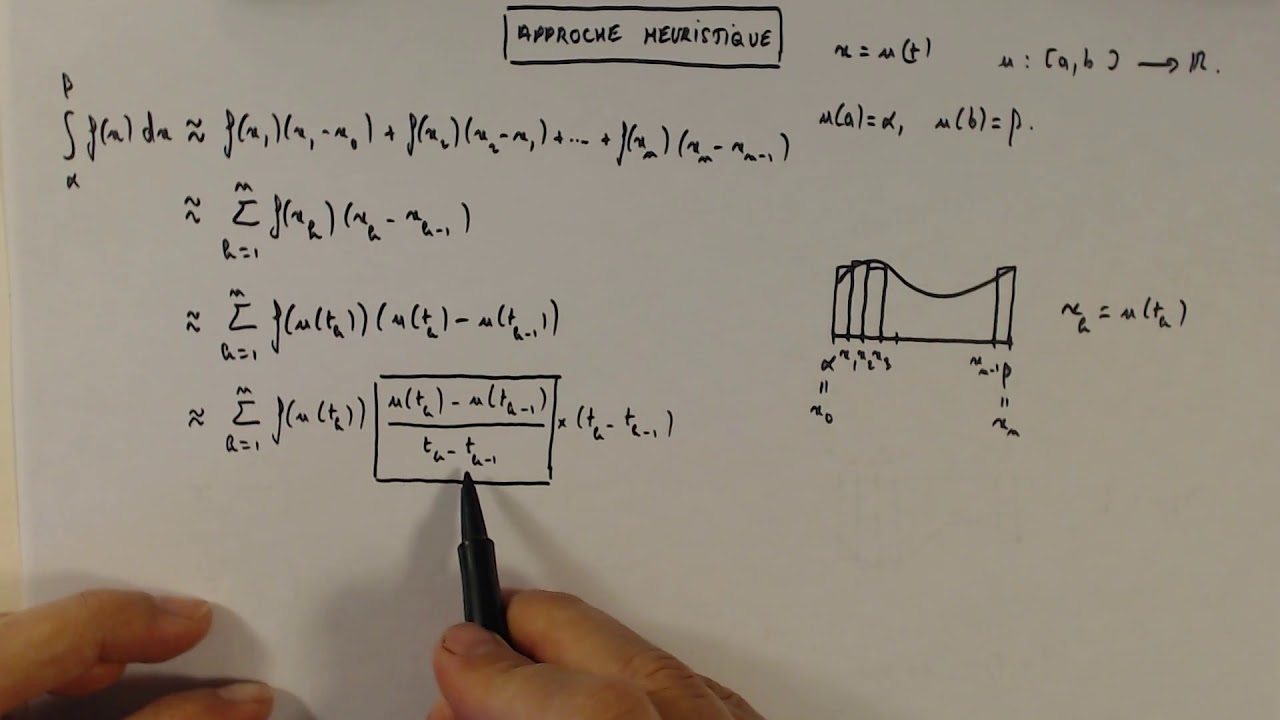 APPROCHE HEURISTIQUE
x = u(t)    u : [a,b] → ℝ.
∫_α^β f(x) dx ≈ f(x₁)(x₁ - x₀) + f(x₂)(x₂ - x₁) + ... + f(xₙ)(xₙ - xₙ₋₁)
u(a) = α,    u(b) = β.
≈ Σ_{k=1}^{n} f(x_k)(x_k - x_{k-1})
≈ Σ_{k=1}^{n} f(u(t_k))(u(t_k) - u(t_{k-1}))
≈ Σ_{k=1}^{n} f(u(t_k)) (u(t_k) - u(t_{k-1}))/(t_k - t_{k-1}) × (t_k - t_{k-1})
x_k = u(t_k)
α x₁ x₂ x₃ xₙ₋₁ β
= =
x₀ xₙ